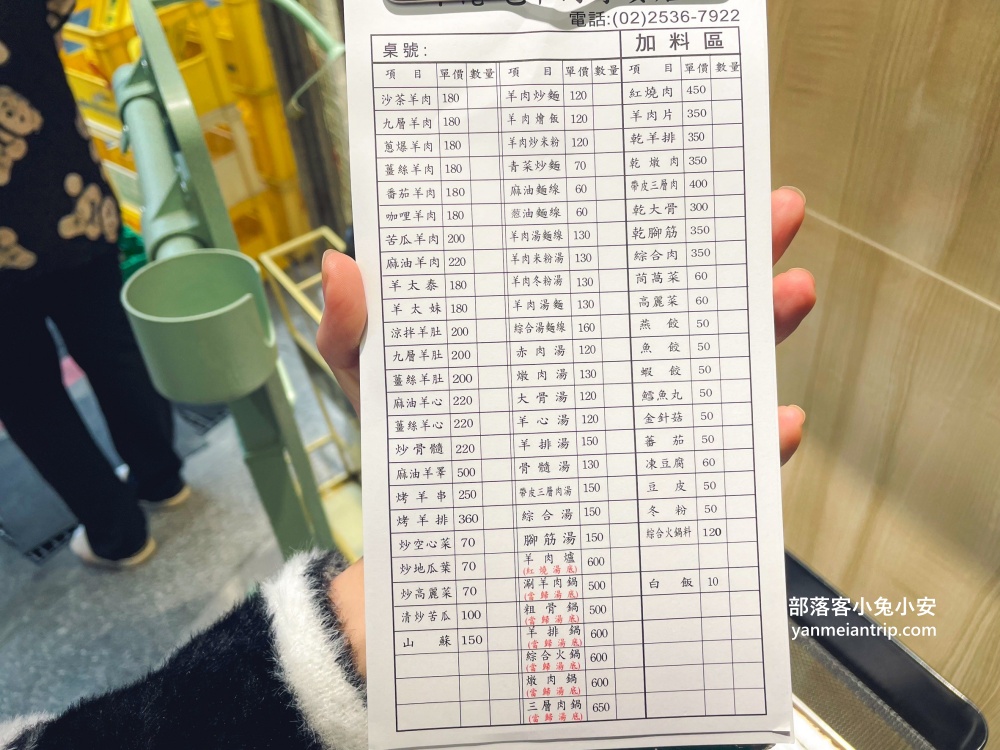 電話:(02)2536-7922
桌號:
加料區
項目 單價 數量 項目 單價 數量 項目 單價 數量
沙茶羊肉 180 羊肉炒麵 120 紅燒肉 450
九層羊肉 180 羊肉燴飯 120 羊肉片 350
蔥爆羊肉 180 羊肉炒米粉 120 乾羊排 350
薑絲羊肉 180 青菜炒麵 70 乾燉肉 350
番茄羊肉 180 麻油麵線 60 帶皮三層肉 400
咖哩羊肉 180 蔥油麵線 60 乾大骨 300
苦瓜羊肉 200 羊肉湯麵線 130 乾腳筋 350
麻油羊肉 220 羊肉米粉湯 130 綜合肉 350
羊太泰 180 羊肉冬粉湯 130 茼萵菜 60
羊太妹 180 羊肉湯麵 130 高麗菜 60
涼拌羊肚 200 綜合湯麵線 160 燕餃 50
九層羊肚 200 赤肉湯 120 魚餃 50
薑絲羊肚 200 燉肉湯 130 蝦餃 50
麻油羊心 220 大骨湯 120 鱈魚丸 50
薑絲羊心 220 羊心湯 120 金針菇 50
炒骨髓 220 羊排湯 150 蕃茄 50
麻油羊睪 500 骨髓湯 130 凍豆腐 60
烤羊串 250 帶皮三層肉湯 150 豆皮 50
烤羊排 360 綜合湯 150 冬粉 50
炒空心菜 70 腳筋湯 150 綜合火鍋料 120
炒地瓜葉 70 羊肉爐 600
(紅燒湯底)
炒高麗菜 70 涮羊肉鍋 500 白飯 10
(當歸湯底)
清炒苦瓜 100 粗骨鍋 500
(當歸湯底)
山蘇 150 羊排鍋 600
(當歸湯底)
綜合火鍋 600
(當歸湯底)
燉肉鍋 600
(當歸湯底)
三層肉鍋 650
(當歸湯底)
部落客小兔小安
yanmeiantrip.com